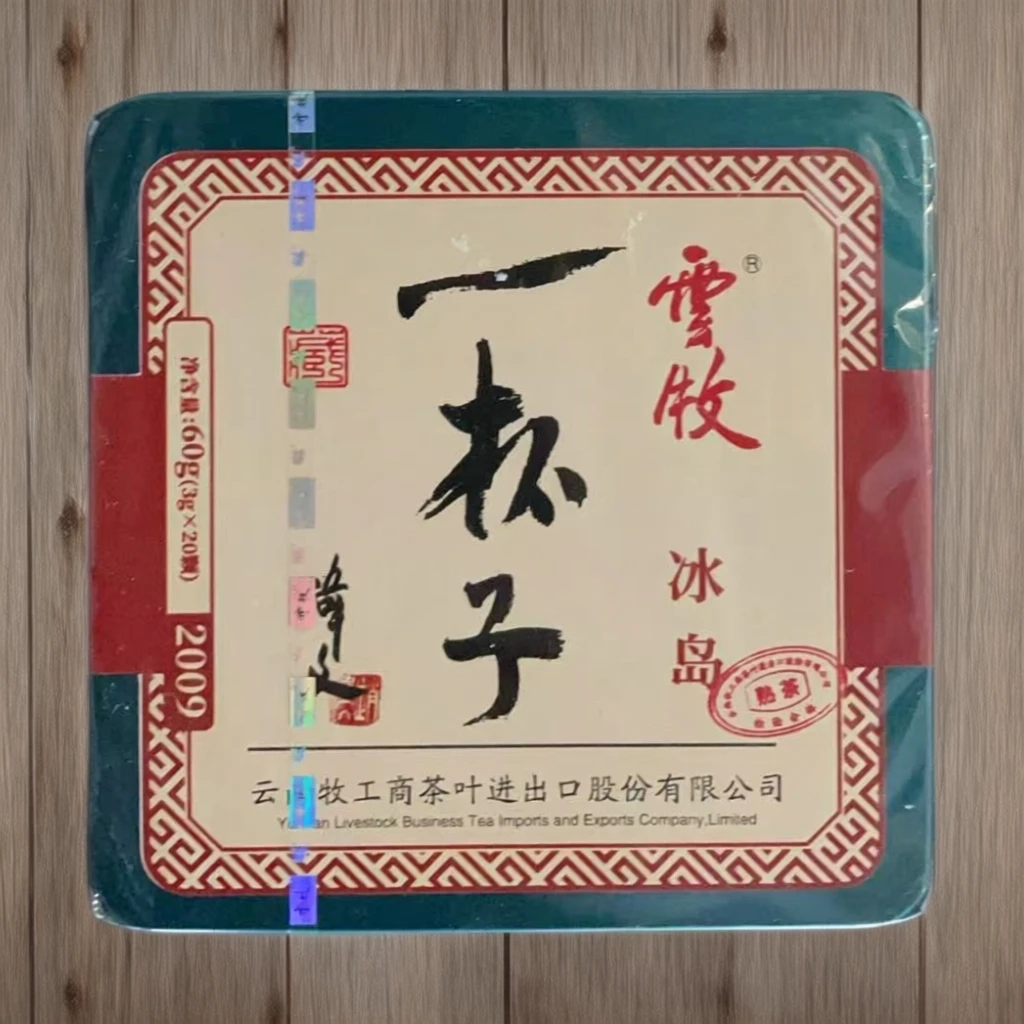 雲牧®
冰岛
熟茶
一杯子
藏
净含量:60g(3g×20颗)
2009
云南牧工商茶叶进出口股份有限公司
Yunnan Livestock Business Tea Imports and Exports Company,Limited